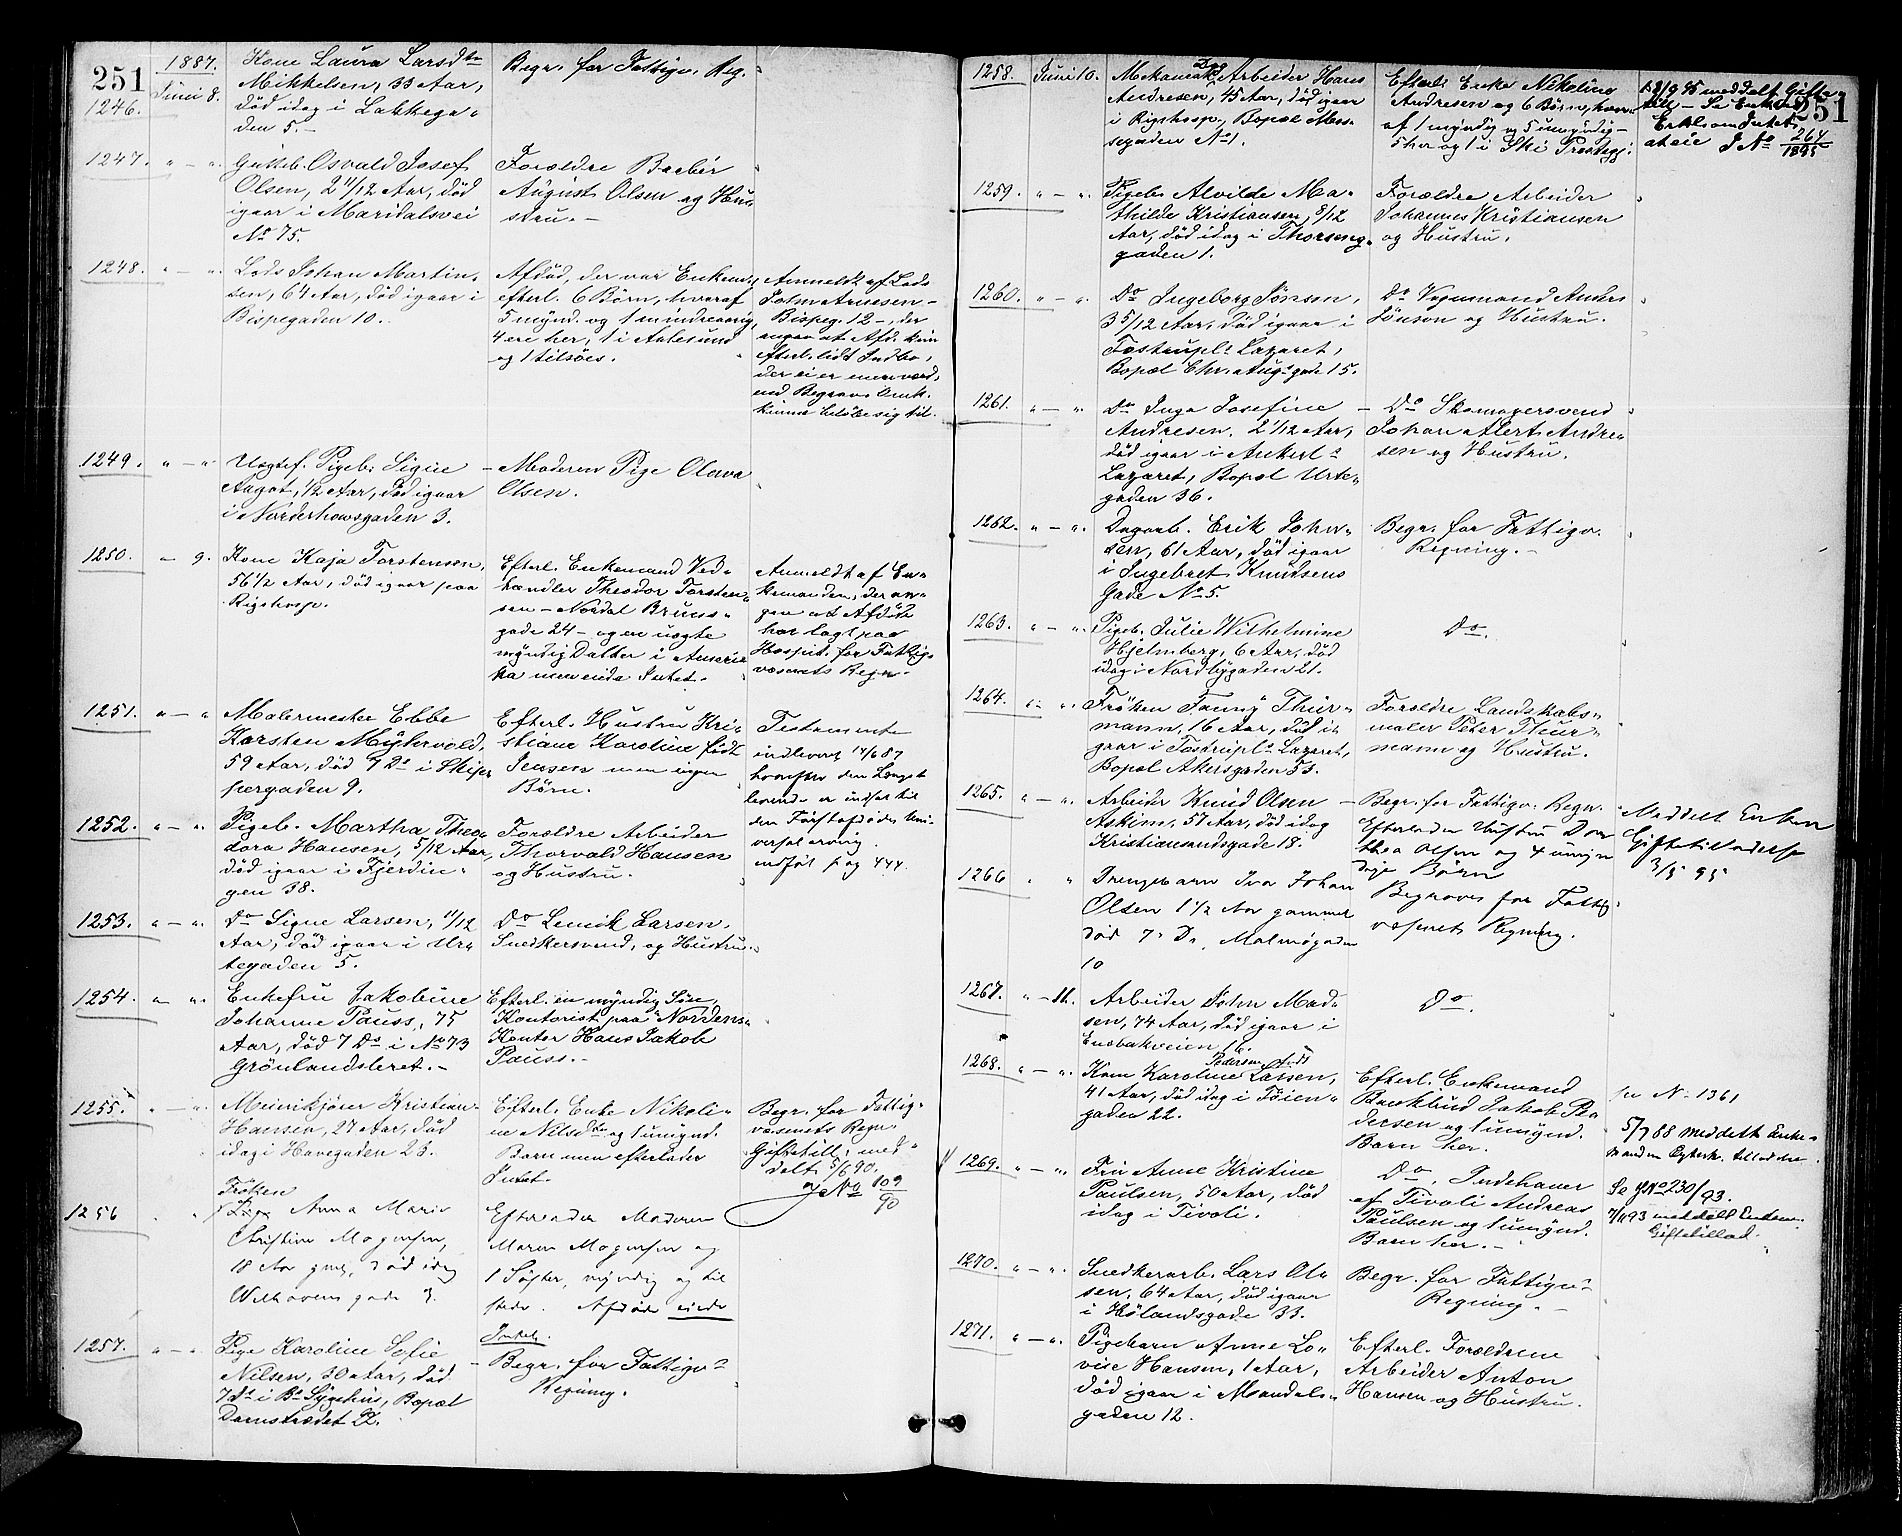 251
1887.
1246.
Juni 8.
Kone Laura Larsdtr
Mikkelsen, 33 Aar,
død idag i Lakkega-
den 5.-
Begr. for Fattigv. Reg.
1247. " - ".
Gutteb. Osvald Josef
Olsen, 2 11/12 Aar, død
igaar i Maridalsvei
No 75.
Forældre Barbér
August Olsen og Hu-
stru.-
1248. " - ".
Lods Johan Martin-
sen, 64 Aar, død igaar i
Bispegaden 10.
Afdød, der var Enkem.,
efterl. 6 Børn, hvoraf
5 mynd. og 1 mindreaarig,
4 ere her, 1 i Aalesund
og 1 tilsøes.
Anmeldt af Lods
Bispeg. 12 -, der
angav at Afd. kun
efterl. lidt Indbo,
der ei er mere værd,
end Begravs. Omk.
kunne beløbe sig til.
1249. " - "
Uægtef. Pigeb. Signe
Aagot, 1/2 Aar, død igaar
i Norderhovsgaden 3.
Moderen Pige Olava
Olsen.
1250. - 9.
Kone Kaja Torstensen,
56 1/2 Aar, død igaar paa
Rigshosp.
Efterl. Enkemand Ved-
handler Theodor Torsten-
sen - Nordal Bruns-
gade 24 - og en uægte
myndig Datter i Ameri-
ka men eide Intet.
Anmeldt af En-
kemanden, der an-
gav at Afdøde
har lagt paa
Hospit. for Fattig-
væsenets Regn.
1251. " - "
Malermester Ebbe
Karsten Mÿtervold,
59 Aar, død 7 Ds i Skip-
pergaden 9.
Efterl. Hustru Kri-
stiane Karoline født
Jensen men ingen
Børn.
Testamente
indleveret 14/6 87
hvorefter den Længst
levende er indsat til
den Førstafdødes Uni-
versalarving.
indført pag 444.
1252. " - ".
Pigeb. Martha Theo-
dora Hansen, 5/12 Aar,
død igaar i Fjerdin-
gen 38.
Forældre Arbeider
Thorvald Hansen
og Hustru.
1253. " - ".
Do Signe Larsen, 11/12
Aar, død igaar i Ur-
tegaden 5.
Do Lenik Larsen,
Snedkersvend, og Hustru.
1254. " ".
Enkefru Jakobine
Johanne Pauss, 75
Aar, død 7 Ds i No 73
Grønlandsleret.-
Efterl. en myndig Søn,
Kontorist paa "Nordens"
Kontor Hans Jakob
Pauss.-
1255. " - ".
Kristian
Hansen, 27 Aar, død
idag i Havegaden 23.
Efterl. Enke Nikoli-
ne Nilsdtr og 1 umynd.
Barn men efterlader
Intet.
Begr. for Fattig-
væsenets Regn.
Giftetill. med-
delt 5/6 90.
J No 109/90
1256
Frøken
Anna Marie
Christine Mogensen,
18 Aar gml, død idag
Welhavens gade 3.
Efterlader Moderen
Maren Mogensen og
1 Søster, myndig og til
stede. Afdøde eiede
Intet.
1257. " - ".
Pige Karoline Sofie
Nilsen, 30 Aar, død
7 Ds i Bs Sygehus, Bopæl
Damstrædet 22.
Begr. for Fattigv.
Regning.
1258. Juni 10.
Dag
Mekanisk Arbeider Hans
Andresen, 45 Aar, død igaar
i Rigshosp., Bopæl Mos-
segaden No 1.
Efterl. Enke Nikoline
Andresen og 6 Børn, hvor-
af 1 myndig og 5 umyndig-
5 her og 1 i Ski Prestegj.
18/9 95 meddelt Gifte-
till - Se Enkens
Erkl. om Intet
at eie J No 264/1895
251
1259. " - ".
Pigeb. Alvilde Ma-
thilde Kristiansen, 8/12
Aar, død idag i Thorseng-
gaden 1.
Forældre Arbeider
Johannes Kristiansen
og Hustru.
1260. " - ".
Do Ingeborg Jönson,
3 5/12 Aar, død igaar i
Tostrupls Lazaret,
Bopæl Chr. Augs gade 15.
Do Vognmand Anders
Jönson og Hustru.
1261. " - ".
Do Inga Josefine
Andresen, 2 1/12 Aar,
død igaar i Ankerls
Lazaret, Bopæl Urte-
gaden 36.
Do Skomagersvend
Johan Albert Andre-
sen og Hustru.
1262. " - ".
Dagarb. Erik John-
sen, 61 Aar, død igaar
i Ingebret Knudsens
Gade No 5.
Begr. for Fattigv.
Regning.-
1263. " - ".
Pigeb. Julie Wilhelmine
Hjelmberg, 6 Aar, død
idag i Nordbygaden 21.
Do.
1264. " - ".
Frøken Fanny Thur-
mann, 16 Aar, død i-
gaar i Tostrupls Lazaret,
Bopæl Akersgaden 53.
Forældre Landskabs-
maler Peter Thur-
mann og Hustru.
1265. " - ".
Arbeider Knud Olsen
Askim, 57 Aar, død idag
Kristiansandsgade 18.
Begr. for Fattigv. Regn.
Efterlader Hustru Doro
thea Olsen og 4 umyn
dige Børn
Meddelt Enken
Giftetilladelse
3/5 95
1266 " "
Drengebarn Iver Johan
Olsen 1 1/2 Aar gammel
død 7 Ds, Malmøgaden
10
Begraves for Fattig
væsnets Regning.
1267. " - 11.
Arbeider John Mad-
sen, 74 Aar, død igaar i
Enebakveien 16.
Do.
1268. " - ".
Pedersen født
Kone Karoline Larsen,
41 Aar, død idag i Töien-
gaden 22.
Efterl. Enkemand
Jakob Pe-
dersen og 1 umynd.
Barn her.
se N. 1361
5/7 88 meddelt Enke-
manden tilladelse.
1269. " - ".
Fru Anne Kristine
Paulsen, 50 Aar, død
idag i Tivoli.
Do, Indehaver
af Tivoli Andreas
Paulsen og 1 umynd.
Barn her.-
Se J No 230/93.
7/11 93 meddelt Enkem.
Giftetillad.
1270. " - ".
Snedkerarb. Lars Ol-
sen, 64 Aar, død igaar
i Hølandsgade 33.
Begr. for Fattigv.
Regning.-
1271. " - ".
Pigebarn Anne Lo-
vise Hansen, 1 Aar,
død igaar i Mandals-
gaden 12.
Efterl. Forældrene
Arbeider Anton
Hansen og Hustru.